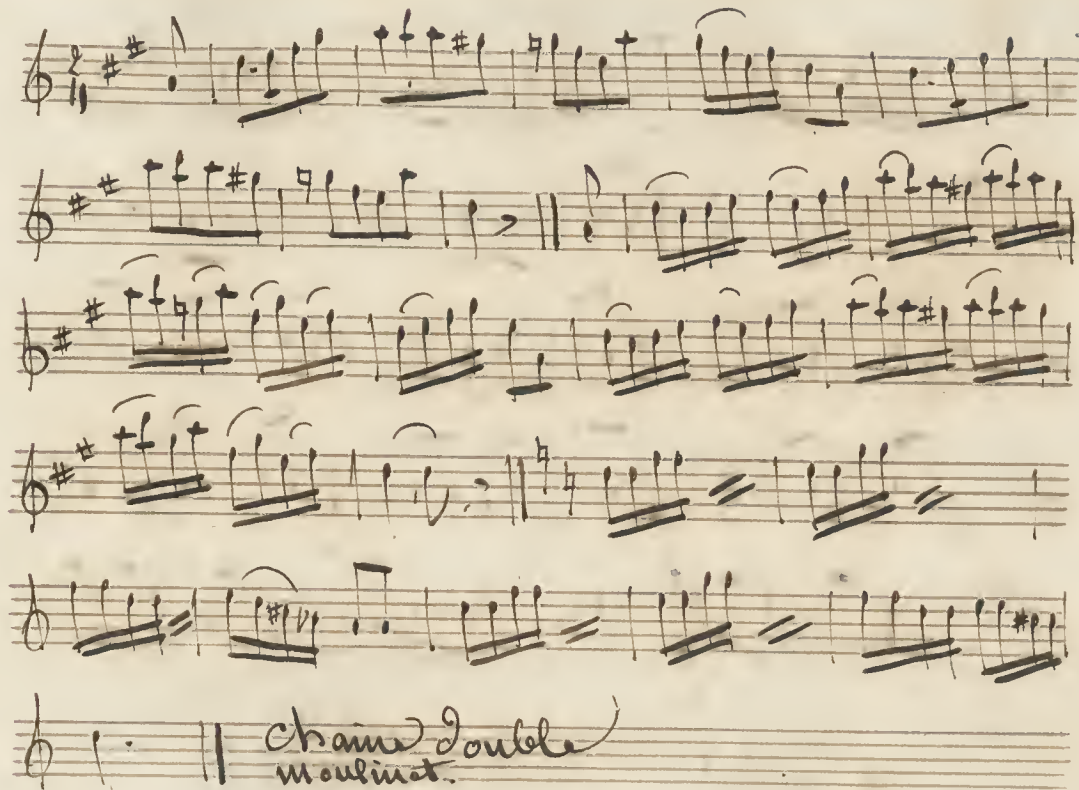 chaine double
moulinet.